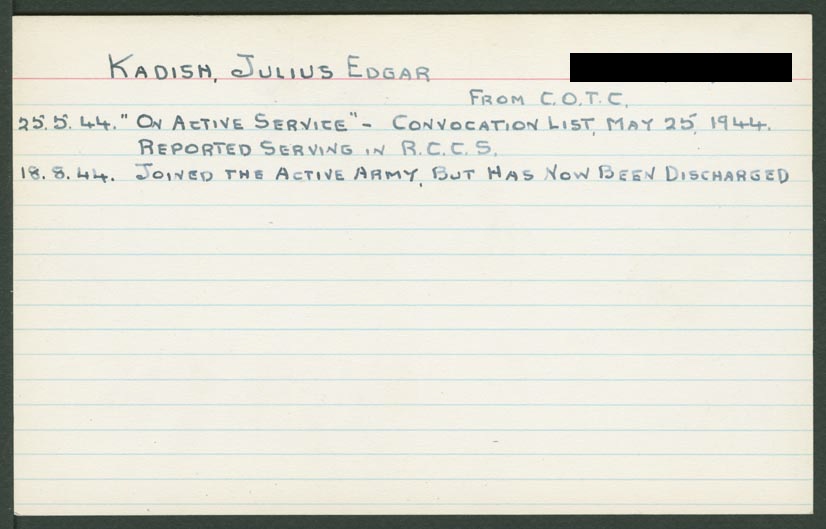 KADISH, JULIUS EDGAR
FROM C.O.T.C.
25.5.44. "ON ACTIVE SERVICE" - CONVOCATION LIST, MAY 25, 1944.
REPORTED SERVING IN R.C.C.S.
18.8.44. JOINED THE ACTIVE ARMY, BUT HAS NOW BEEN DISCHARGED